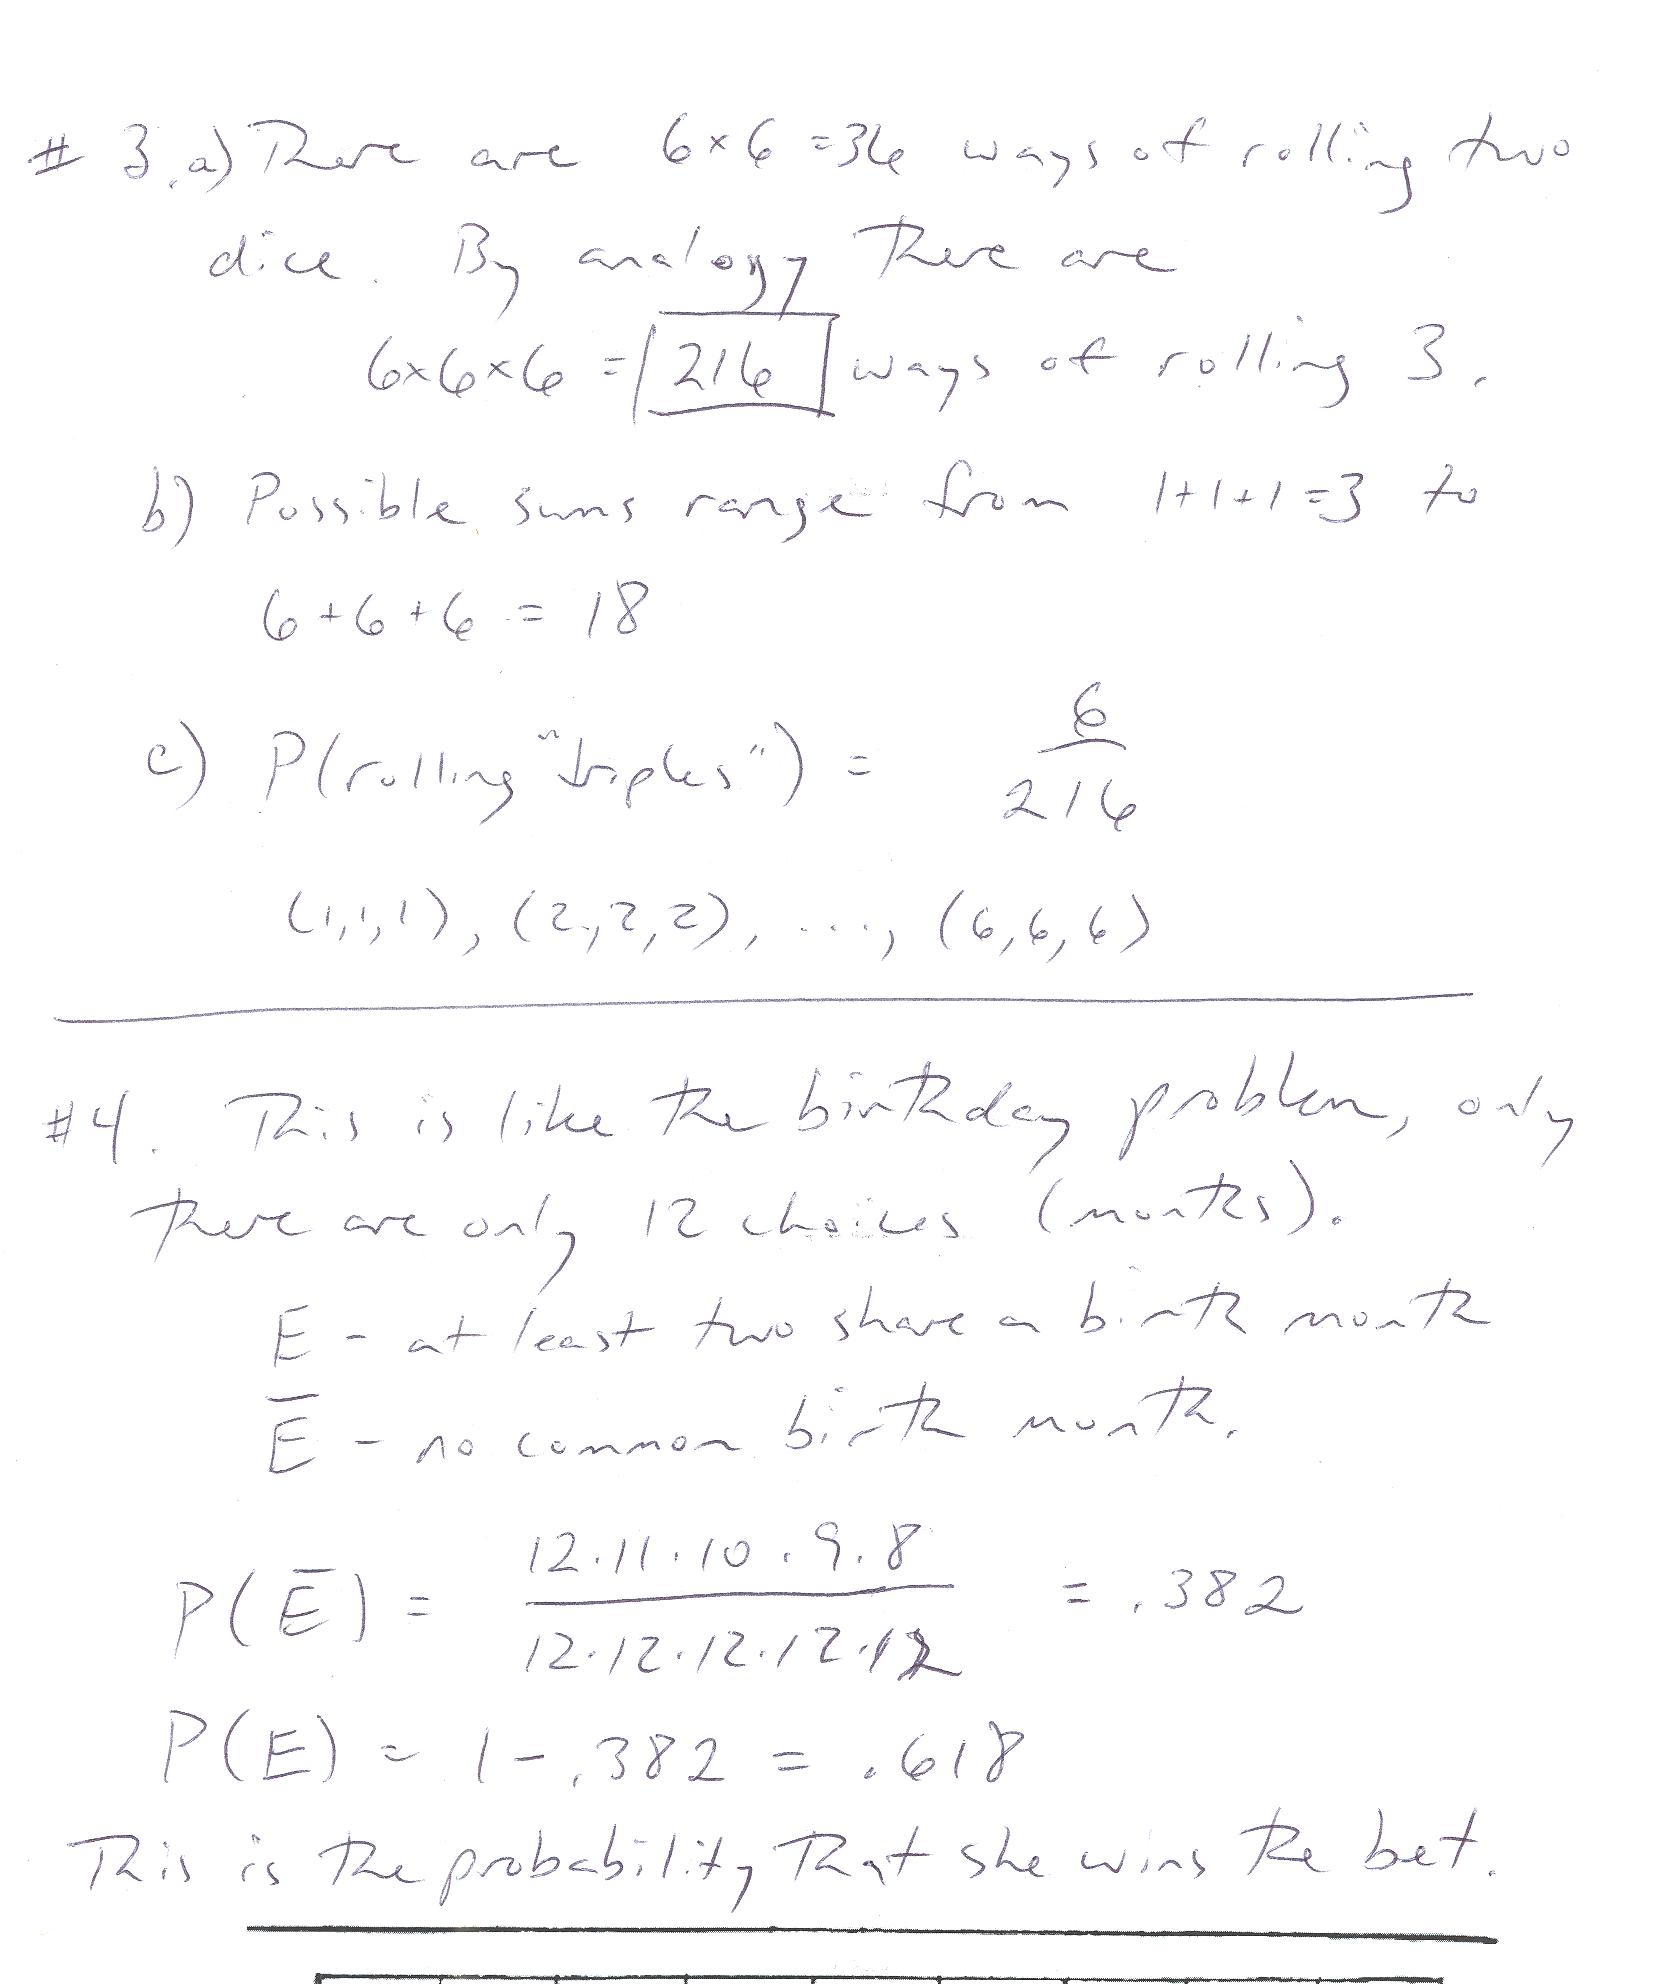 # 3.a) There are 6×6=36 ways of rolling two
dice. By analogy there are
6×6×6 = 216 ways of rolling 3.
b) Possible sums range from 1+1+1=3 to
6+6+6 = 18
c) P(rolling "triples") = 6/216
(1,1,1), (2,2,2), ..., (6,6,6)
#4. This is like the birthday problem, only
there are only 12 choices (months).
E - at least two share a birth month
E̅ - no common birth month.
P(E̅) = 12·11·10·9·8 / 12·12·12·12·12 = .382
P(E) = 1-.382 = .618
This is the probability that she wins the bet.